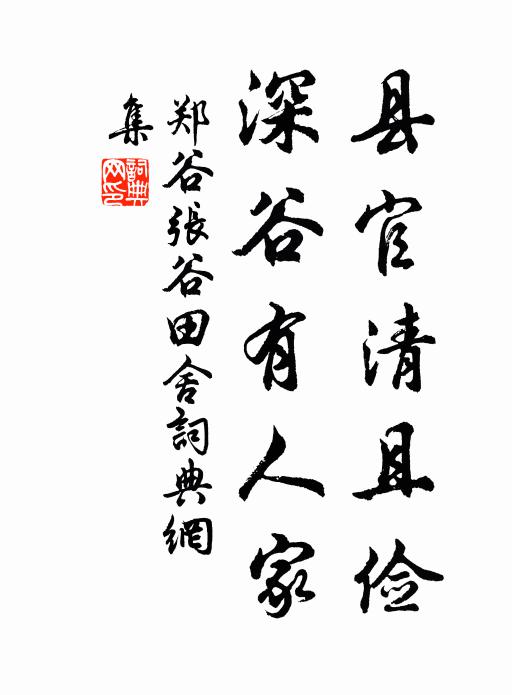 县官清且俭
深谷有人家
郑谷張谷田舍詞典網
集
詞典
网印